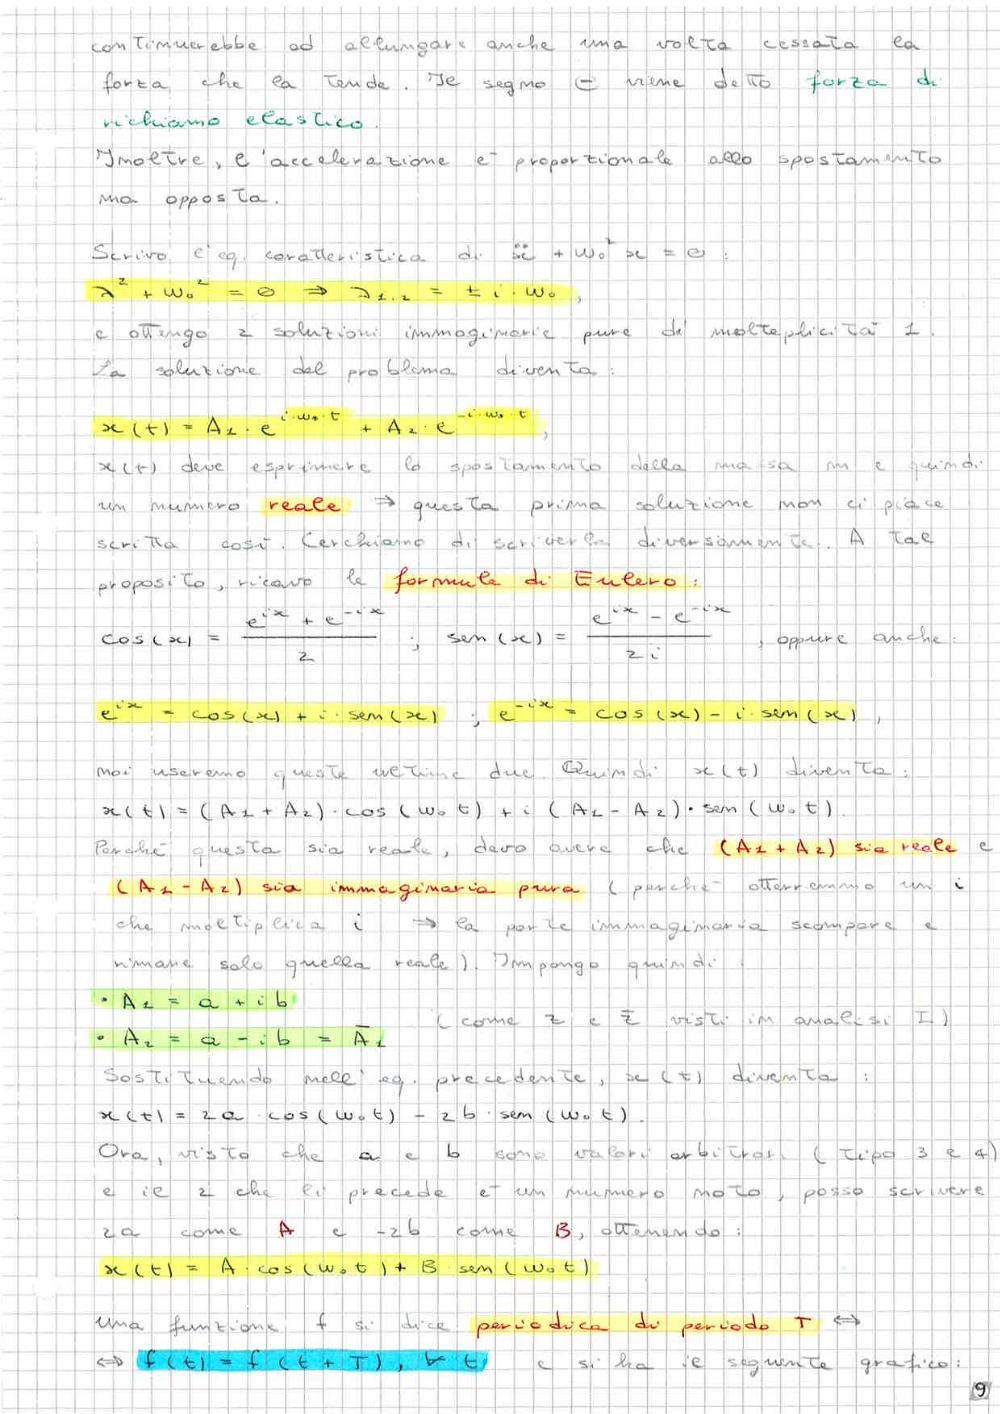 continuerebbe ad allungare anche una volta cessata la
forza che la tende. Il segno ⊖ viene detto forza di
richiamo elastico.
Inoltre, l'accelerazione è proporzionale allo spostamento
ma opposta.
Scrivo l'eq. caratteristica di ẍ + ω₀² x = 0 :
λ² + ω₀² = 0 ⇒ λ₁,₂ = ± i · ω₀,
e ottengo 2 soluzioni immaginarie pure di molteplicità 1.
La soluzione del problema diventa:
x(t) = A₁ · e^(i·ω₀·t) + A₂ · e^(-i·ω₀·t),
x(t) deve esprimere lo spostamento della massa m e quindi
un numero reale ⇒ questa prima soluzione non ci piace
scritta così. Cerchiamo di scriverla diversamente. A tal
proposito, ricavo le formule di Eulero:
cos(x) = (e^(ix) + e^(-ix))/2 ; sen(x) = (e^(ix) - e^(-ix))/2i , oppure anche:
e^(ix) = cos(x) + i · sen(x) ; e^(-ix) = cos(x) - i · sen(x) ,
noi useremo queste ultime due. Quindi x(t) diventa:
x(t) = (A₁ + A₂) · cos(ω₀t) + i (A₁ - A₂) · sen(ω₀t).
Perché questa sia reale, devo avere che (A₁ + A₂) sia reale e
(A₁ - A₂) sia immaginaria pura (perché otterremmo un i
che moltiplica i ⇒ la parte immaginaria scompare e
rimane solo quella reale). Impongo quindi:
• A₁ = a + ib
(come z e z̄ visti in analisi I)
• A₂ = a - ib = Ā₁
Sostituendo nell'eq. precedente, x(t) diventa :
x(t) = 2a · cos(ω₀t) - 2b · sen(ω₀t).
Ora, visto che a e b sono valori arbitrari (tipo 3 e 4)
e il 2 che li precede è un numero noto, posso scrivere
2a come A e -2b come B, ottenendo:
x(t) = A · cos(ω₀t) + B · sen(ω₀t)
Una funzione f si dice periodica di periodo T ⇔
⇔ f(t) = f(t + T), ∀ t e si ha il seguente grafico:
9